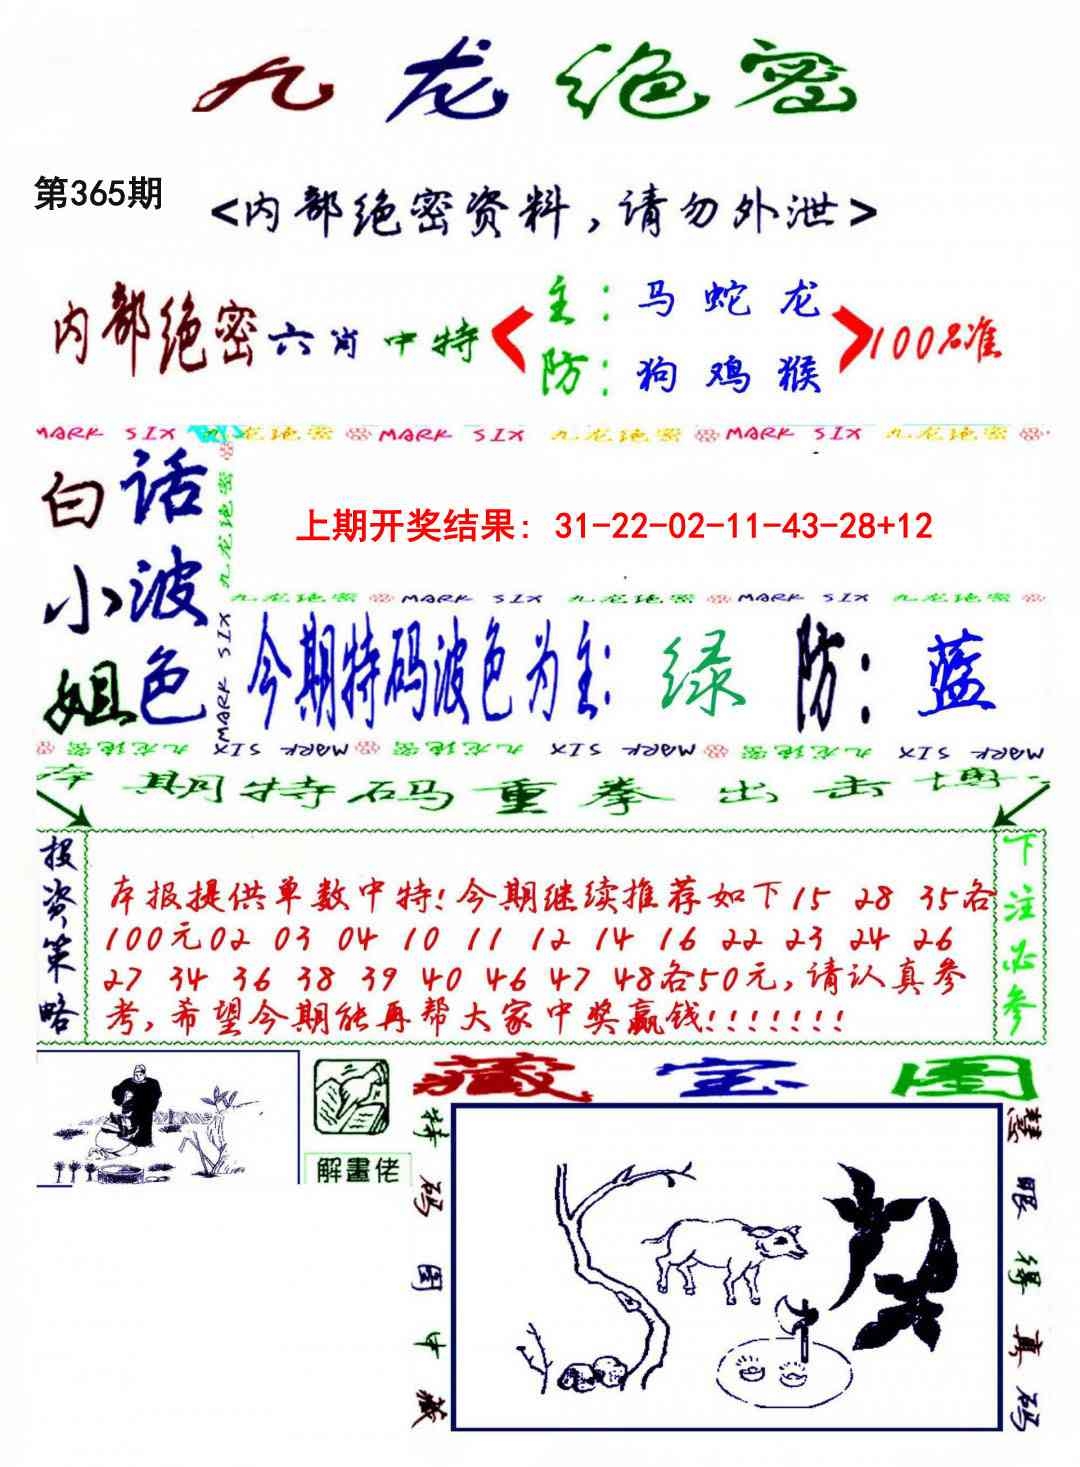 九龙绝密
第365期
<内部绝密资料,请勿外泄>
内部绝密六肖中特
主:马 蛇 龙
防:狗 鸡 猴
100%准
MARK SIX 九龙绝密 MARK SIX 九龙绝密 MARK SIX 九龙绝密
白话小波姐色
九龙绝密
MARK SIX
上期开奖结果: 31-22-02-11-43-28+12
九龙绝密 MARK SIX 九龙绝密 MARK SIX 九龙绝密
今期特码波色为主: 绿 防: 蓝
九龙绝密 MARK SIX 九龙绝密 MARK SIX 九龙绝密 MARK SIX
本期特码重拳出击博
投资策略
本报提供单数中特!今期继续推荐如下15 28 35各
100元02 03 04 10 11 12 14 16 22 23 24 26
27 34 36 38 39 40 46 47 48各50元,请认真参
考,希望今期能再帮大家中奖赢钱!!!!!!!
下注必参
解畫佬
藏宝图
特码图中藏
慧眼得真码